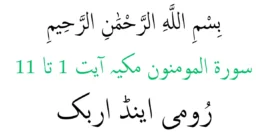 بِسْمِ اللَّهِ الرَّحْمَٰنِ الرَّحِيمِ
سورة المومنون مکیہ آیت 1 تا 11
رُومی اینڈ اربک